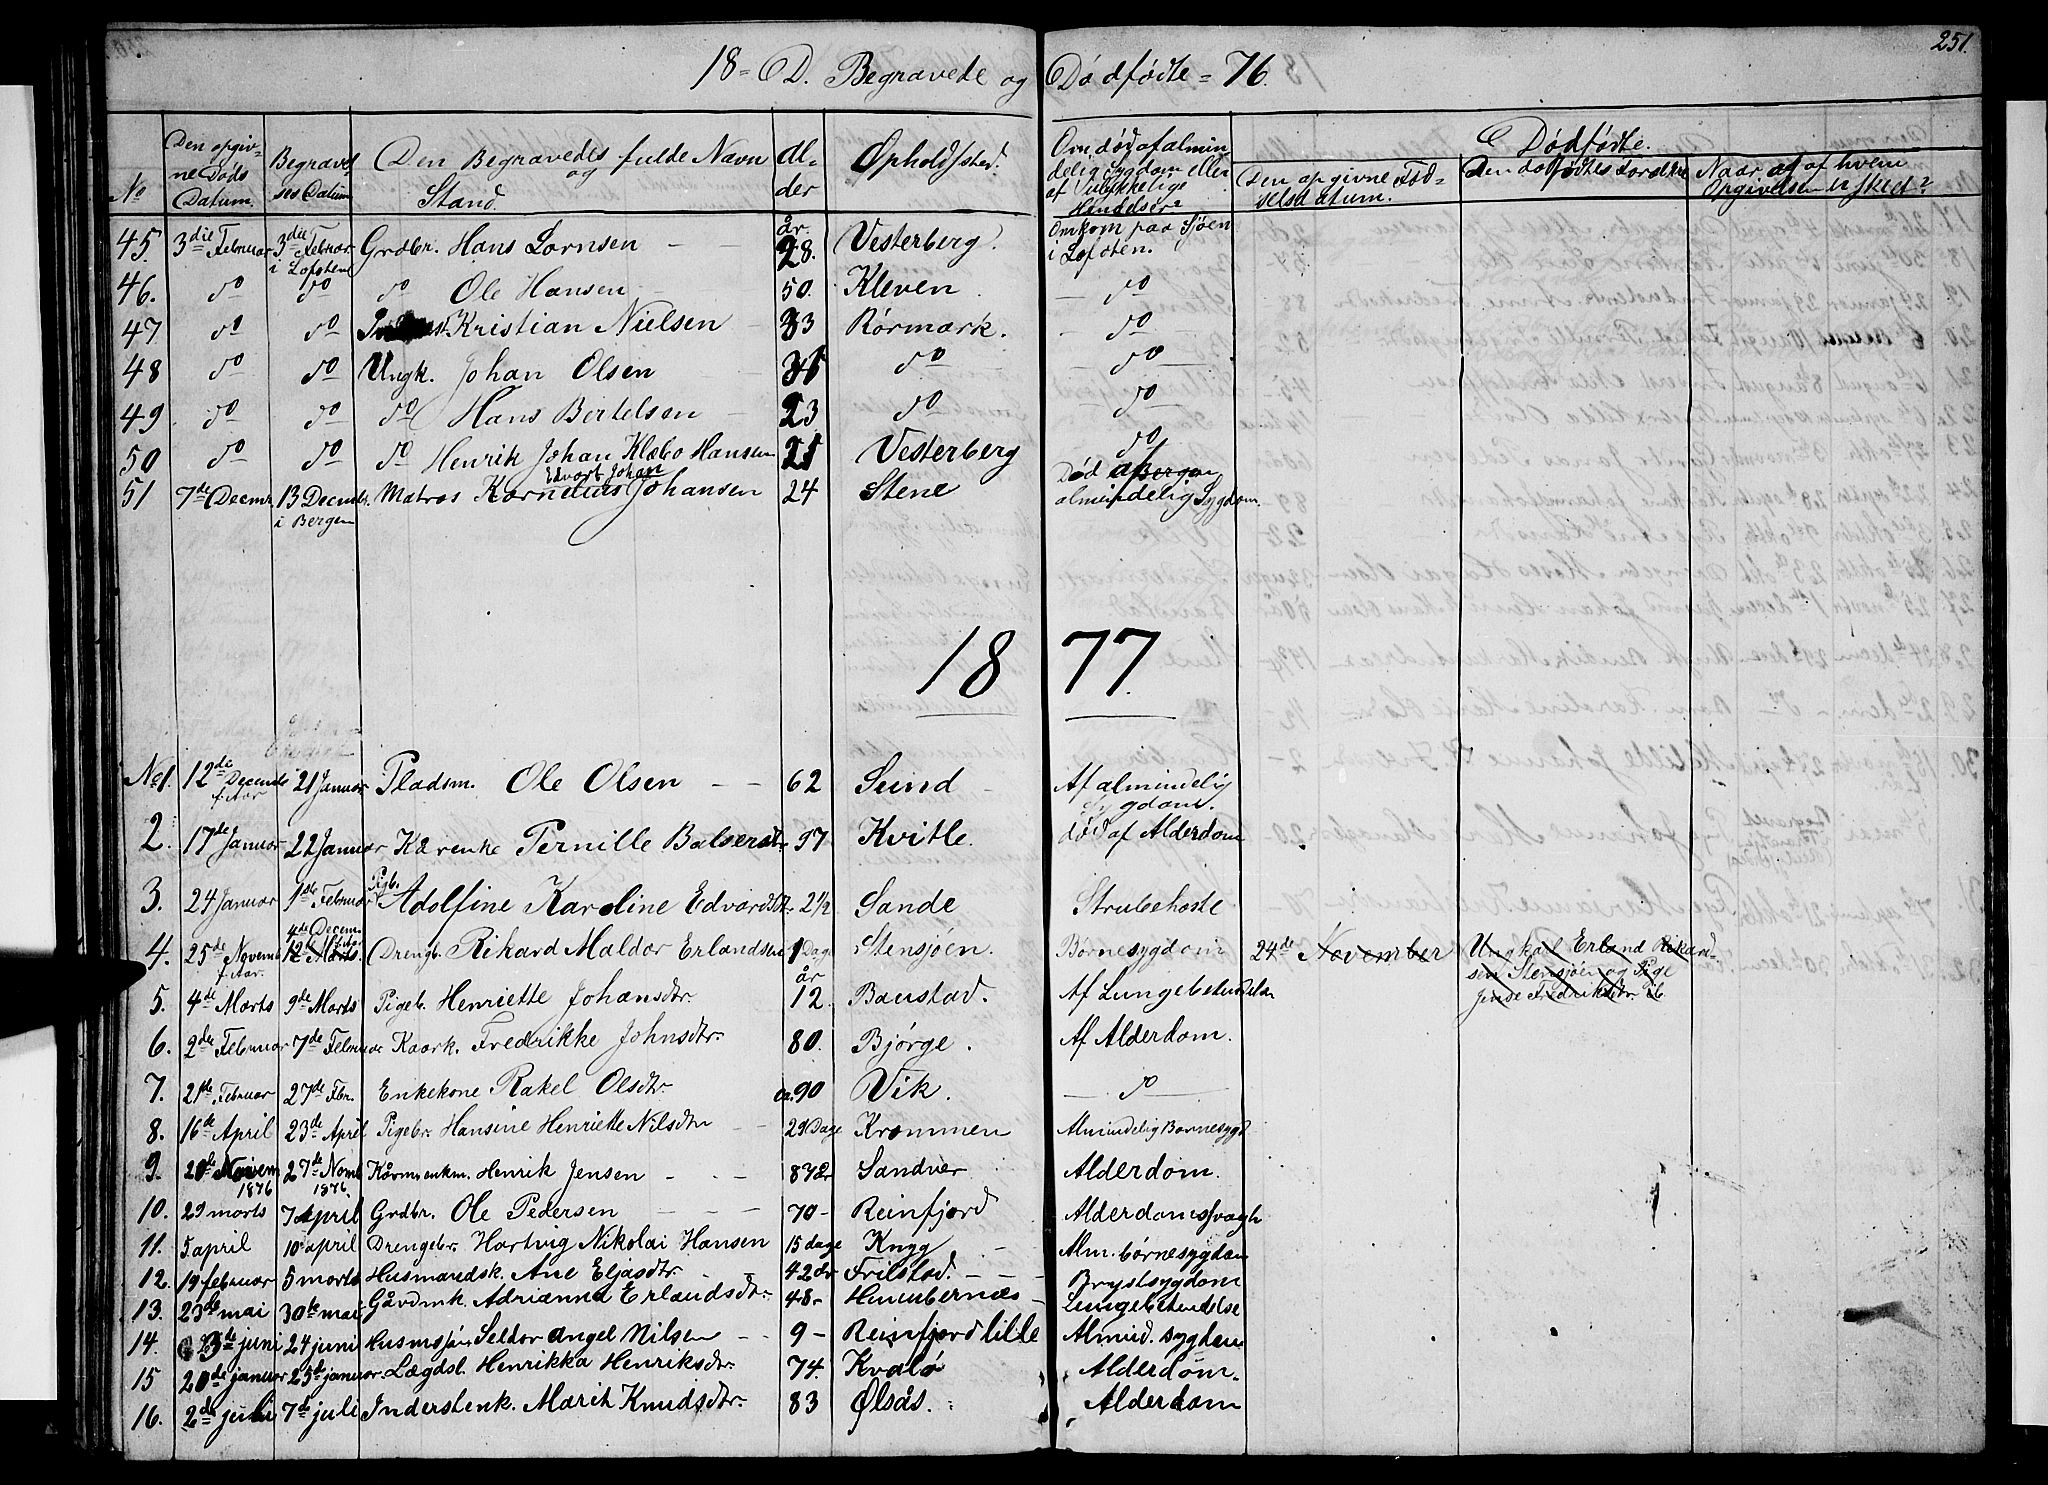 251.
18 = D. Begravede og Dødfødte = 76.
No | Den opgivne Døds Datum. | Begravelses Datum | Den Begravedes fulde Navn og Stand. | Alder | Opholdssted. | Om død af almindelig Sygdom eller af Ulykkelige Hændelser? | Dødfødte.
Den opgivne Fødselsdatum. | Den dødfødtes Forældre | Naar, at af hvem Opgivelsen er skeet?
45. 3die Februar 3die Februar i Lofoten Grdbr. Hans Lornsen år. 28. Vesterberg. Omkom paa Sjøen i Lofoten.
46. do do do Ole Hansen 50. Kleven. do
47. do do Kristian Nielsen 33 Rørmark. do
48 do do Ungk. Johan Olsen do do
49 do do do Hans Bertelsen 23 do do
50 do do do Henrik Johan Klæbo Hansen 21 Vesterberg do
51 7de Decmr. 13 Decmbr. i Bergen Matros Kornelius Edvart Johan Johansen 24 Stene Død af Bergen almindelig Sygdom.
18 77.
No 1. 12de Decembr f. Aar 21 Januar Pladsm. Ole Olsen 62 Sund Af almindelig Sygdom.
2. 17de Januar 22 Januar Kårenke Pernille Balsersdtr. 97 Kvitle. død af Alderdom
3. 24 Januar 1ste Februar Pigb. Adolfine Karoline Edvardsdtr. 2 1/2 Sande Strubehoste
4. 25de Novembr f. Aar. 4de Decem. 12te Marts. Drengb. Rikard Maldor Erlandsen 1 Dage Stensjøen. Børnesygdom 24de November Ungkarl Erland Rikardsen Stensjøen og Pige Jense Fredriksdtr. ib.
5. 4de Marts 9de Marts Pigeb. Henriette Johansdtr. år 12. Baustad. Af Lungebetændelse
6. 2den Februar 7de Februar Kaark. Fredrikke Johnsdtr. 80. Bjørge. Af Alderdom.
7. 21de Februar 27de Fbr. Enkekone Rakel Olsdtr. ca. 90 Vik. do
8. 16de April 23de April Pigebr. Hansine Henriette Nilsdtr 29 Dage Krommen Almindelig Børnesygd
9. 20de Novem 1876 27de Novmb 1876. Kårmænkm. Henrik Jensen 83 år Sandvær Alderdom.
10. 29 marts 7 April Grdbr. Ole Pedersen 70 - Reinfjord Alderdomssvagh
11. 5 april 10 april Drengebr. Hartvig Nikolai Hansen 15 dage Knyg Alm. børnesygdom
12. 19 februar 5 morts Husmandsk. Ane Eljasdtr. 42 år Frilstad. Brystsygdom
13. 23de mai 30te mai Gårdmk. Adrianna Erlandsdtr. 48 - Humbernæs Lungebetændelse
14. 23de juni 24 juni Husmsjøn Seldor Angel Nilsen 9 - Reinfjord lille Almind. sygdom
15 20de januar 25de januar. Lægdsl. Henrikka Henriksdtr. 74. Kvalø Alderdom.
16. 2den juli 7de juli Inderstenk. Marit Knudsdtr. 83 Ølsås. Alderdom